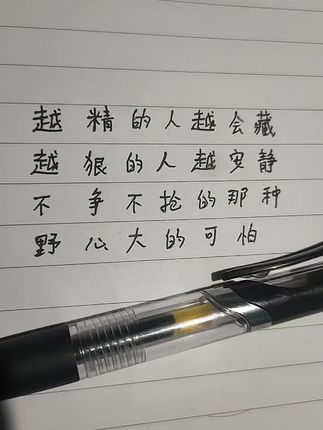 越精的人越会藏
越狠的人越安静
不争不抢的那种
野心大的可怕